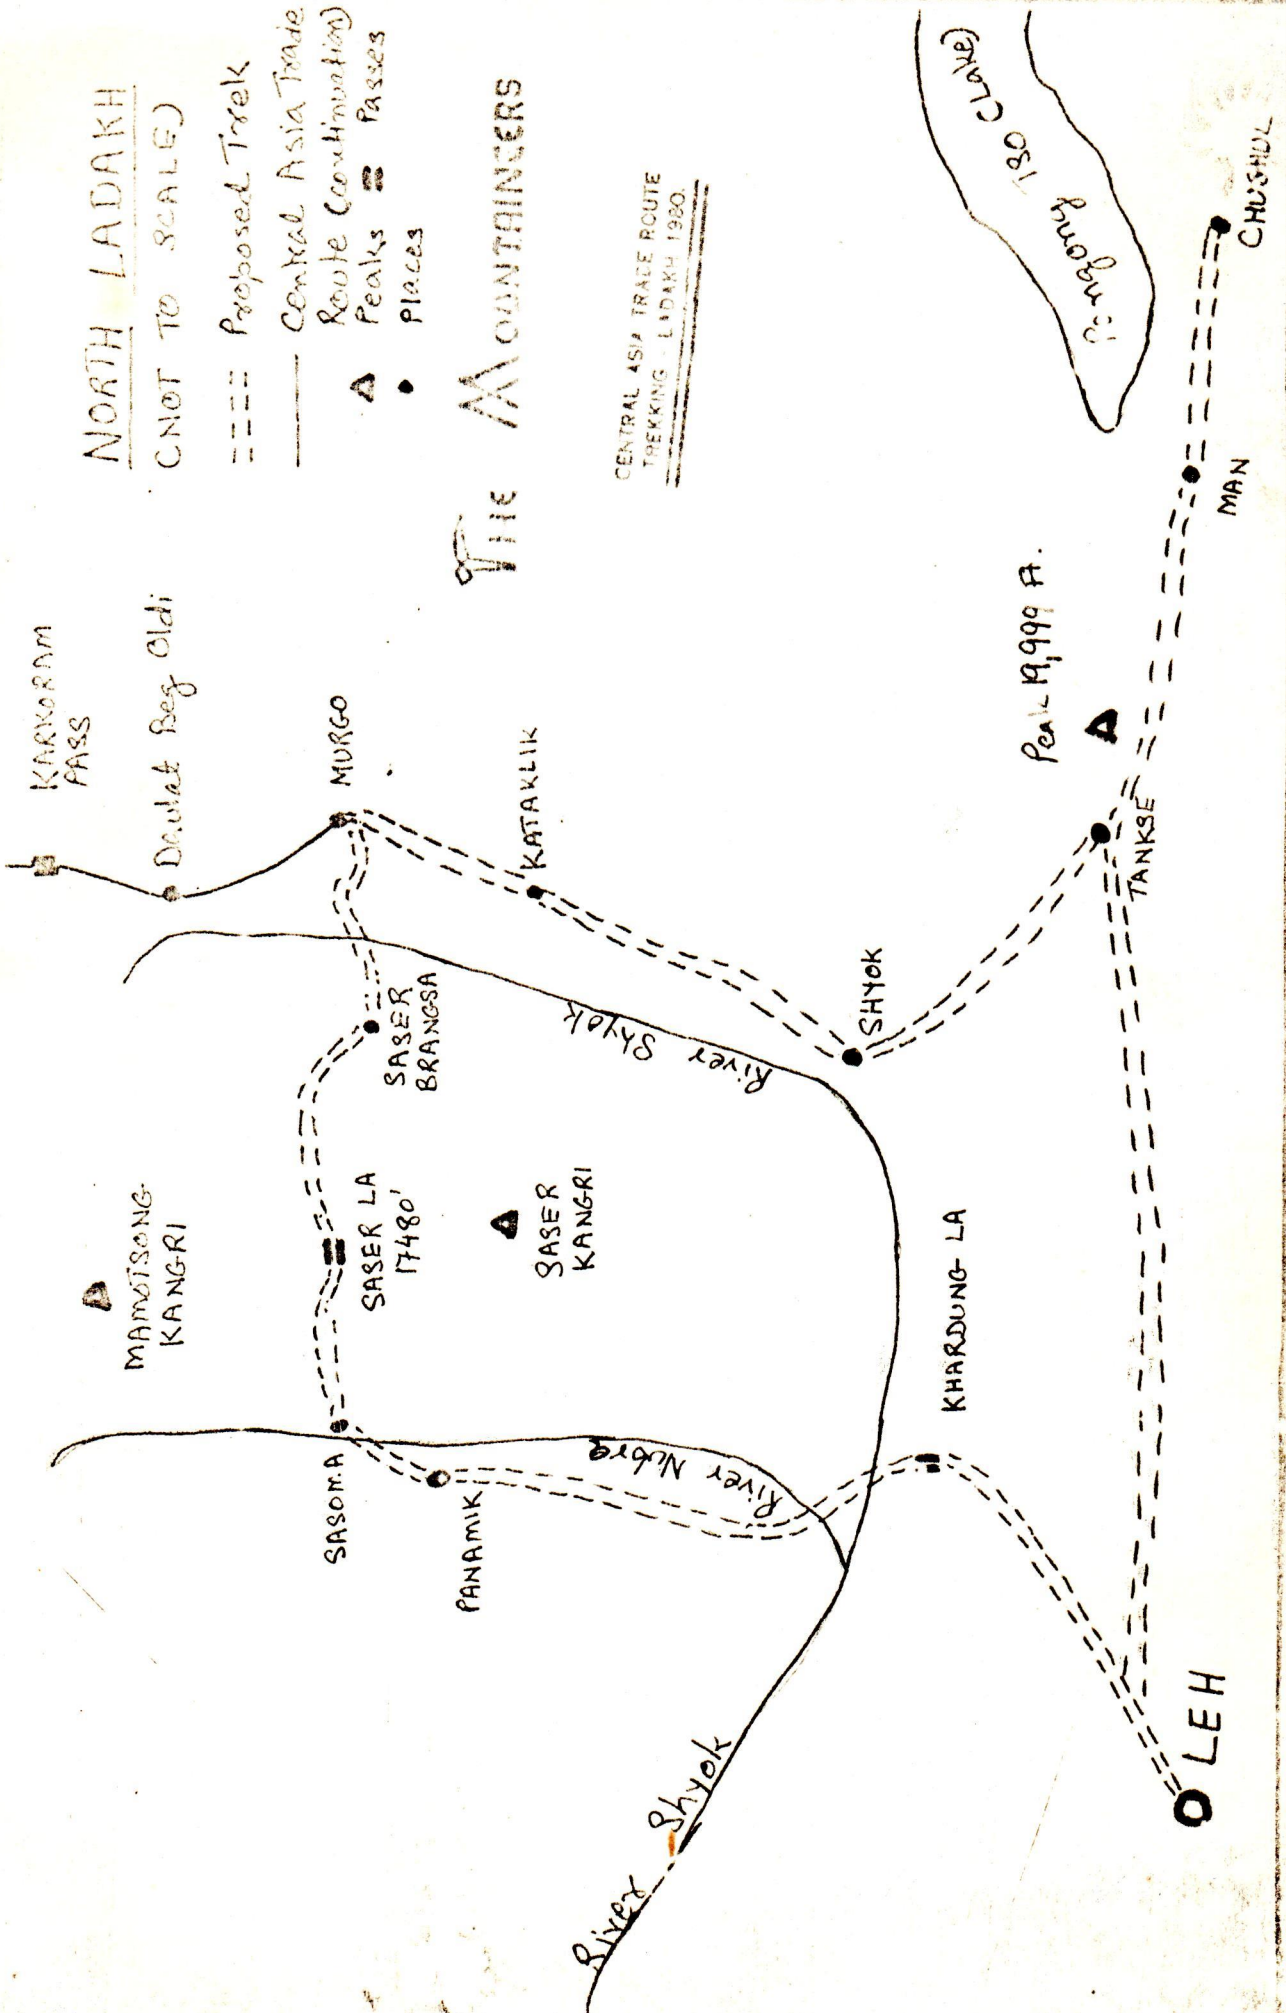 NORTH LADAKH
(NOT TO SCALE)
Proposed Trek
Central Asia Trade
Route (Continuation)
Peaks = Passes
Places
THE MOUNTAINEERS
CENTRAL ASIA TRADE ROUTE
TREKKING - LADAKH 1980.
KARKORAM
PASS
Daulat Beg Oldi
MURGO
KATAKLIK
MAMOTSONG
KANGRI
SASER
BRANGSA
SASER LA
17480'
SASER
KANGRI
SASOMA
PANAMIK
River Nubra
River Shyok
SHYOK
KHARDUNG LA
River Shyok
LEH
TANKSE
Peak 19,999 ft.
MAN
Pangong TSO (Lake)
CHUSHUL